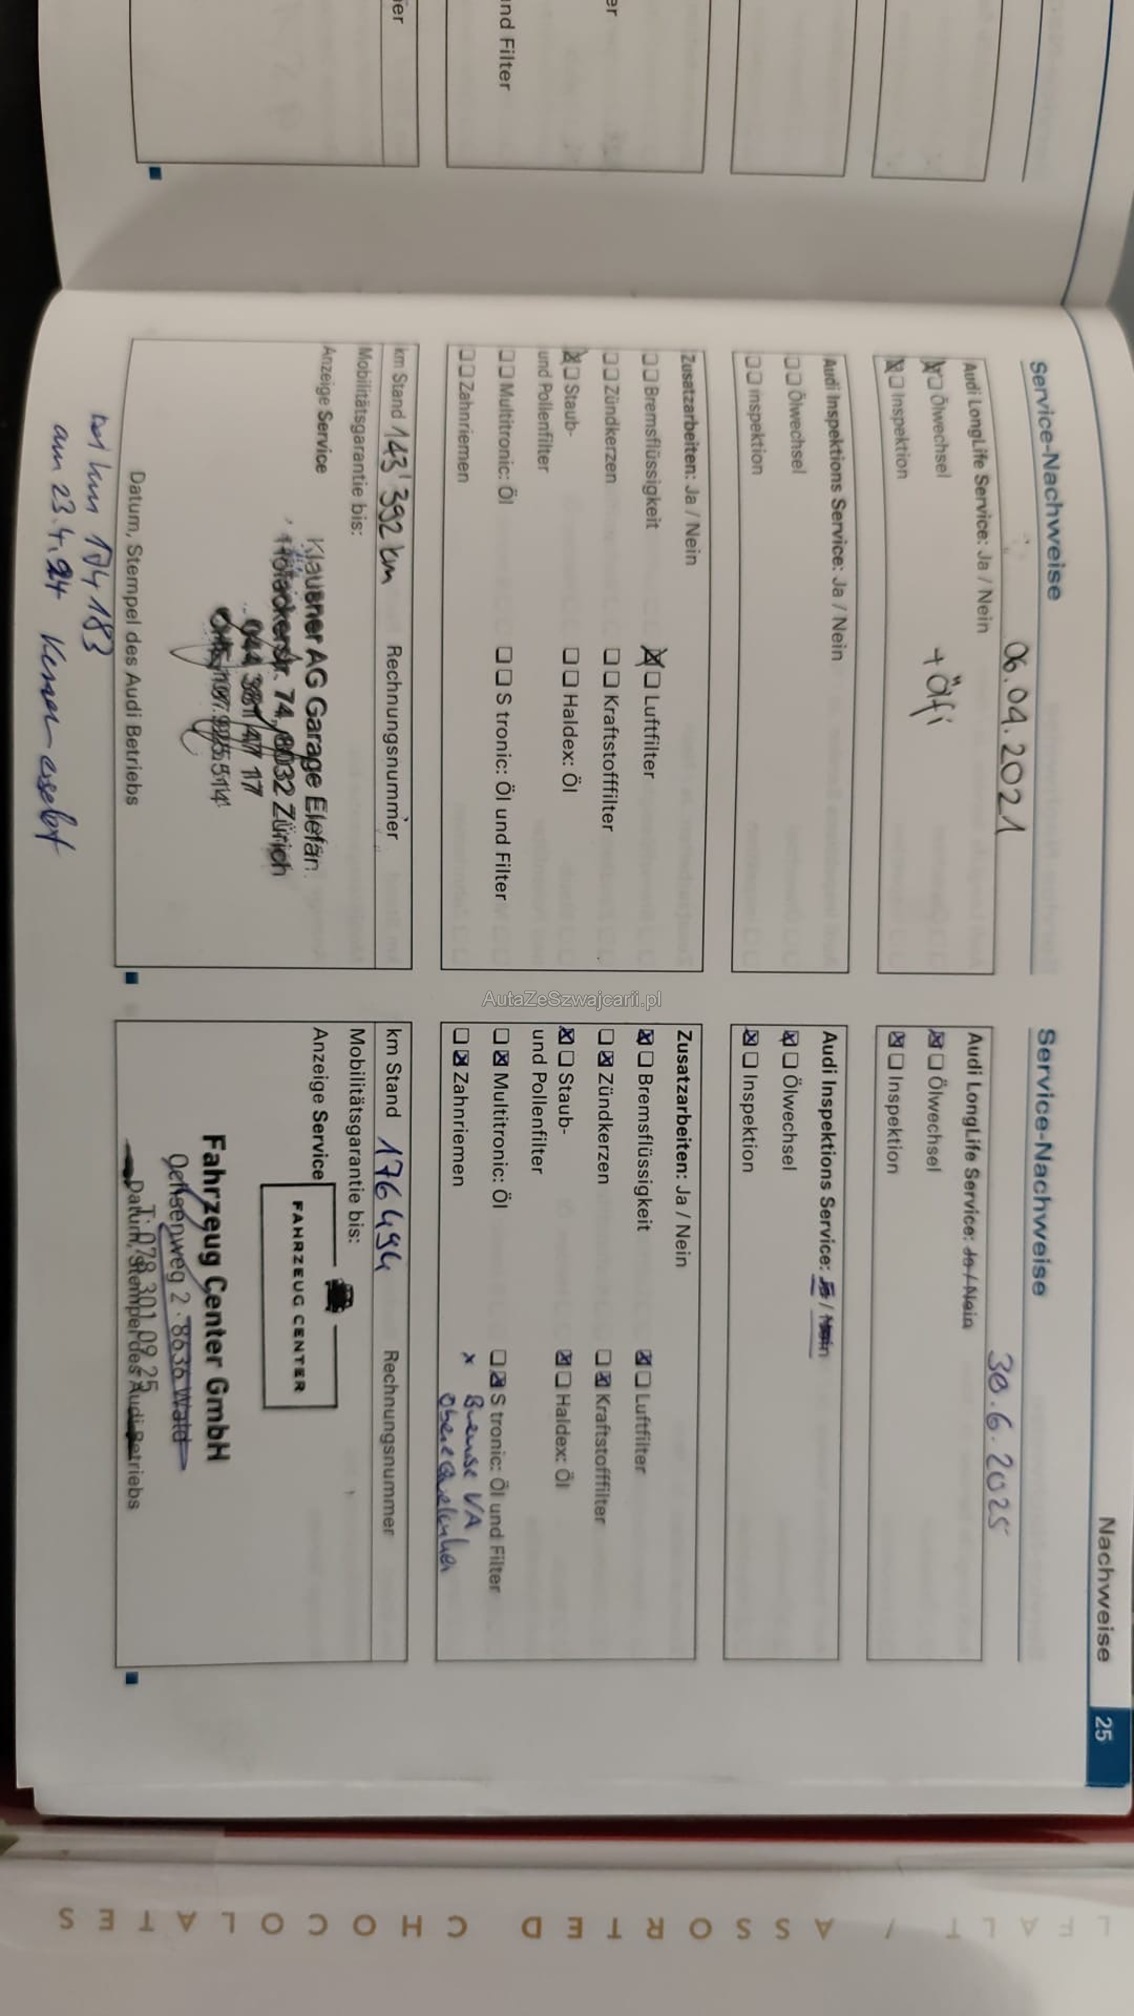 Nachweise 25
Service-Nachweise
06.04.2021
Audi LongLife Service: Ja / Nein
Ölwechsel + Äfi
Inspektion
Audi Inspektions Service: Ja / Nein
Ölwechsel
Inspektion
Zusatzarbeiten: Ja / Nein
Bremsflüssigkeit Luftfilter
Zündkerzen Kraftstofffilter
Staub- Haldex: Öl
und Pollenfilter
Multitronic: Öl S tronic: Öl und Filter
Zahnriemen
km Stand 143'392 km Rechnungsnummer
Mobilitätsgarantie bis:
Anzeige Service
Klausner AG Garage Elefan
74, 8032 Zürich
044 381 47 17
Datum, Stempel des Audi Betriebs
km 174 183
am 23.4.24
Service-Nachweise
30.6.2025
Audi LongLife Service: Ja / Nein
Ölwechsel
Inspektion
Audi Inspektions Service: Ja / Nein
Ölwechsel
Inspektion
Zusatzarbeiten: Ja / Nein
Bremsflüssigkeit Luftfilter
Zündkerzen Kraftstofffilter
Staub- Haldex: Öl
und Pollenfilter
Multitronic: Öl S tronic: Öl und Filter
Zahnriemen x Bremse VA
Obere Querlenker
km Stand 176 494 Rechnungsnummer
Mobilitätsgarantie bis:
Anzeige Service
FAHRZEUG CENTER
Fahrzeug Center GmbH
Oehsenweg 2 · 8636 Wald
T: 079 301 09 25
Datum, Stempel des Audi Betriebs
und Filter
AutaZeSzwajcarii.pl
/ ASSORTED CHOCOLATES